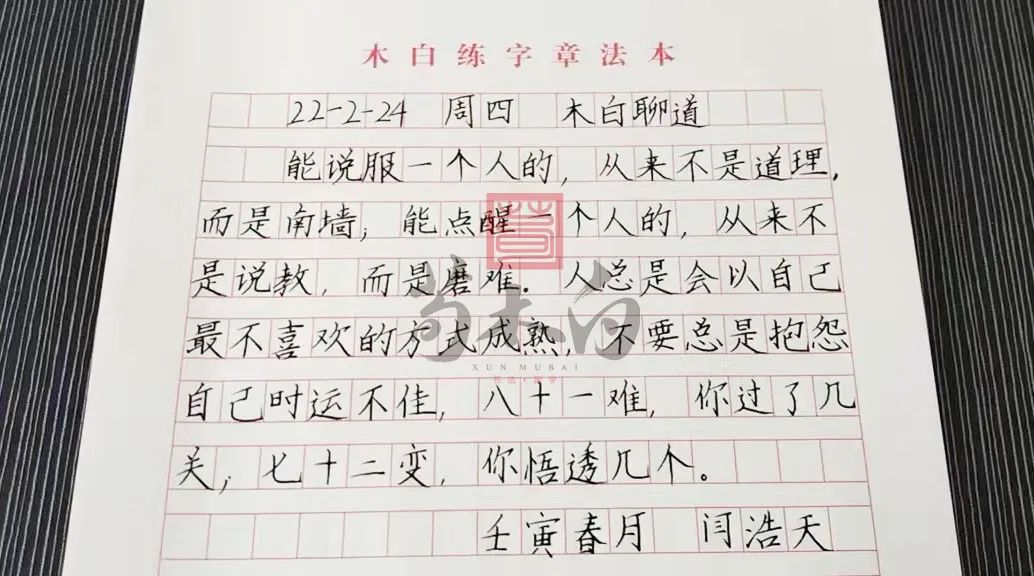 木白练字章法本
22-2-24 周四 木白聊道
能说服一个人的，从来不是道理，
而是南墙；能点醒一个人的，从来不
是说教，而是磨难．人总是会以自己
最不喜欢的方式成熟，不要总是抱怨
自己时运不佳，八十一难，你过了几
关；七十二变，你悟透几个。
壬寅春月 闫浩天
荀木白
XUN MUBAI